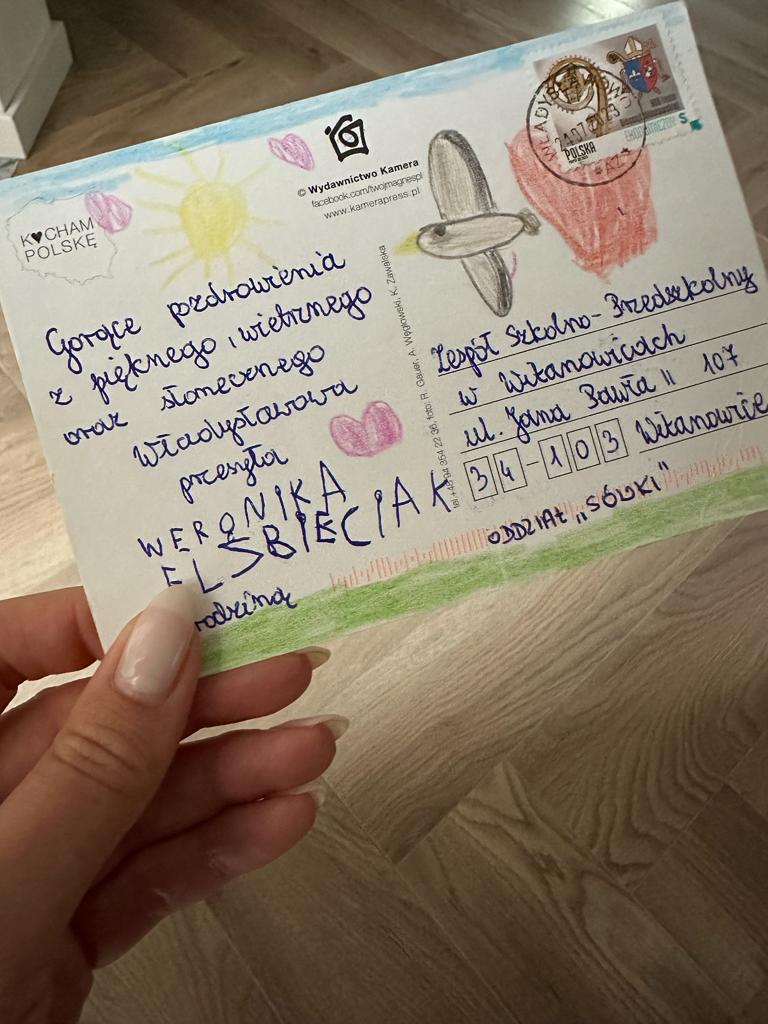 K♥CHAM
POLSKĘ
© Wydawnictwo Kamera
facebook.com/twojmagnespl
www.kamerapress.pl
Gorące pozdrowienia
z pięknego, wietrznego
oraz słonecznego
Władysławowa
przesyła
WERONIKA
ELSBIECIAK
rodziną
tel.+48 94 354 22 36, foto: R. Gauer, A. Węglowski, K. Zawalska
POLSKA
EKONOMICZNY S
Zespół Szkolno-Przedszkolny
w Witanowicach
ul. Jana Pawła II 107
34-103 Witanowice
ODDZIAŁ „SÓWKI"